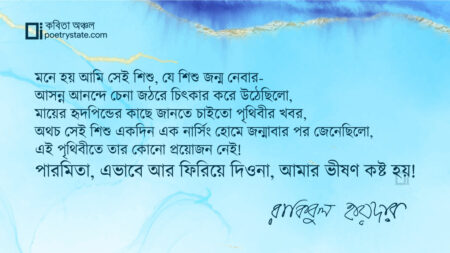 কবিতা অঞ্চল
poetrystate.com
মনে হয় আমি সেই শিশু, যে শিশু জন্ম নেবার-
আসন্ন আনন্দে চেনা জঠরে চিৎকার করে উঠেছিলো,
মায়ের হৃদপিন্ডের কাছে জানতে চাইতো পৃথিবীর খবর,
অথচ সেই শিশু একদিন এক নার্সিং হোমে জন্মাবার পর জেনেছিলো,
এই পৃথিবীতে তার কোনো প্রয়োজন নেই!
পারমিতা, এভাবে আর ফিরিয়ে দিওনা, আমার ভীষণ কষ্ট হয়!
রাকিবুল হায়দার